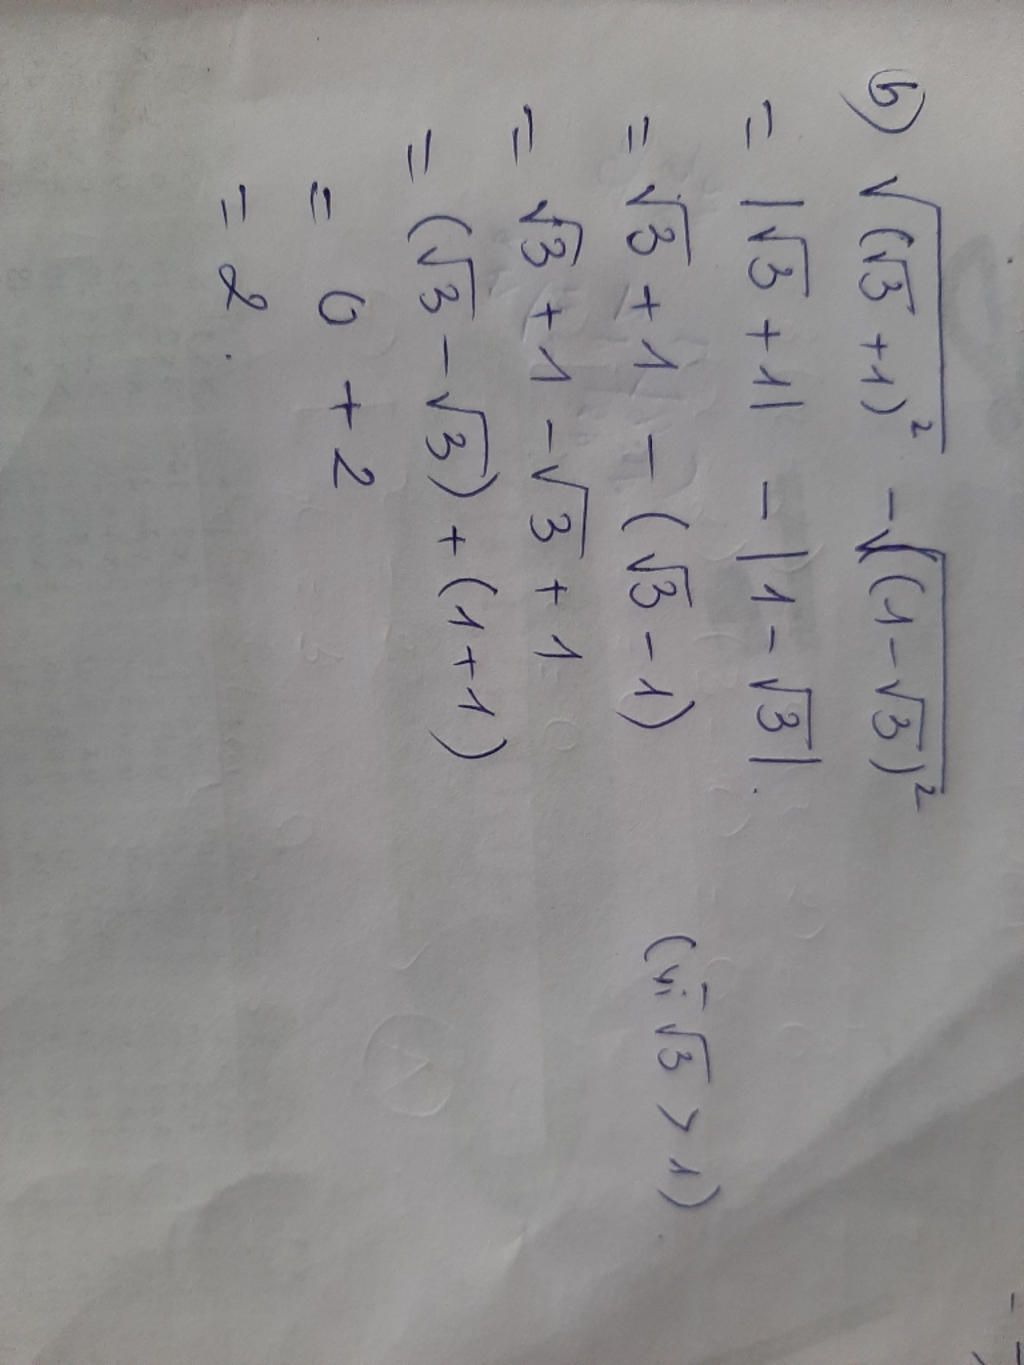 b) √(√3 + 1)² - √(1 - √3)²
= |√3 + 1| - |1 - √3|.
= √3 + 1 - (√3 - 1) (vì √3 > 1)
= √3 + 1 - √3 + 1
= (√3 - √3) + (1 + 1)
= 0 + 2
= 2.